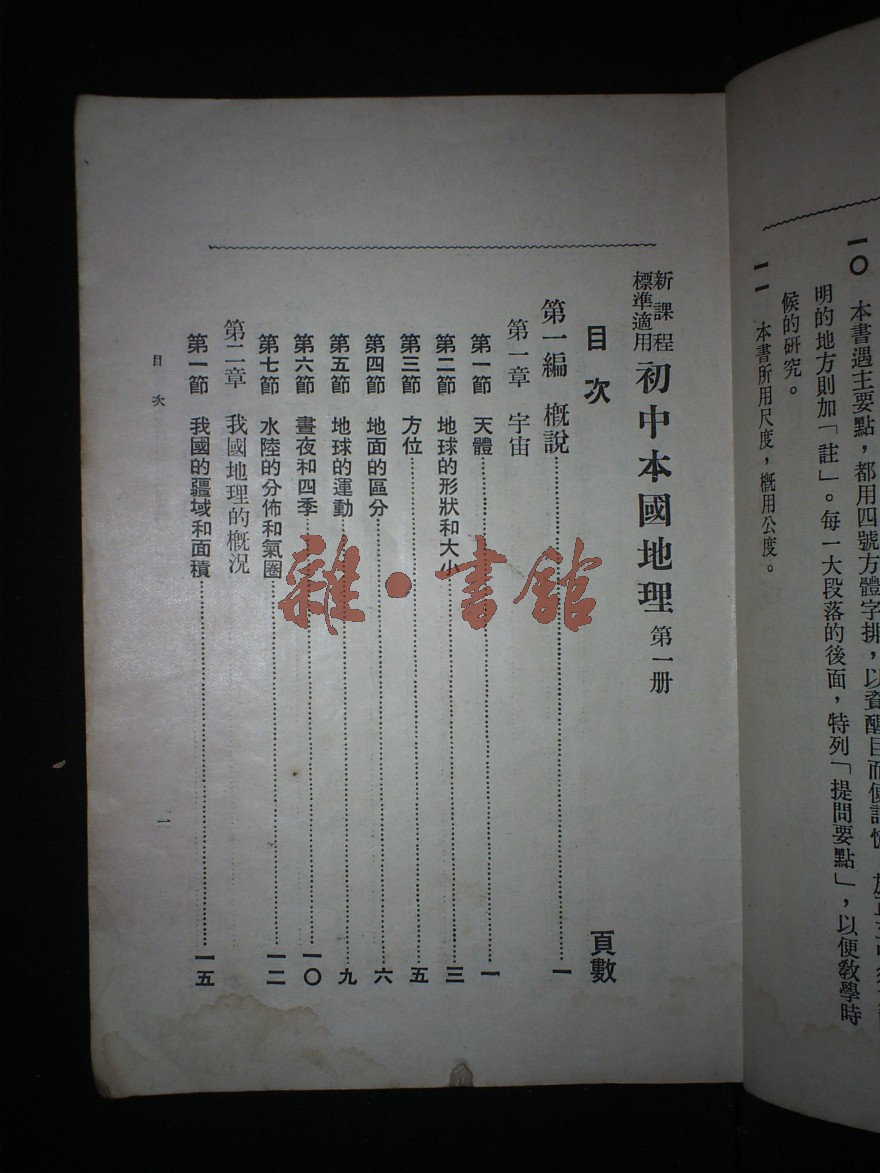 一〇 本書遇主要點，都用四號方體字排，以資醒目而便記憶
明的地方則加「註」。每一大段落的後面，特列「提問要點」，以便敎學時
候的研究。
一一 本書所用尺度，槪用公度。
新課程標準適用 初中本國地理 第一册
目次 頁數
第一編 槪說 一
第一章 宇宙
第一節 天體 一
第二節 地球的形狀和大小 三
第三節 方位 五
第四節 地面的區分 六
第五節 地球的運動 九
第六節 晝夜和四季 一〇
第七節 水陸的分佈和氣圈 一二
第二章 我國地理的槪況
第一節 我國的疆域和面積 一五
目次 一
雜·書館